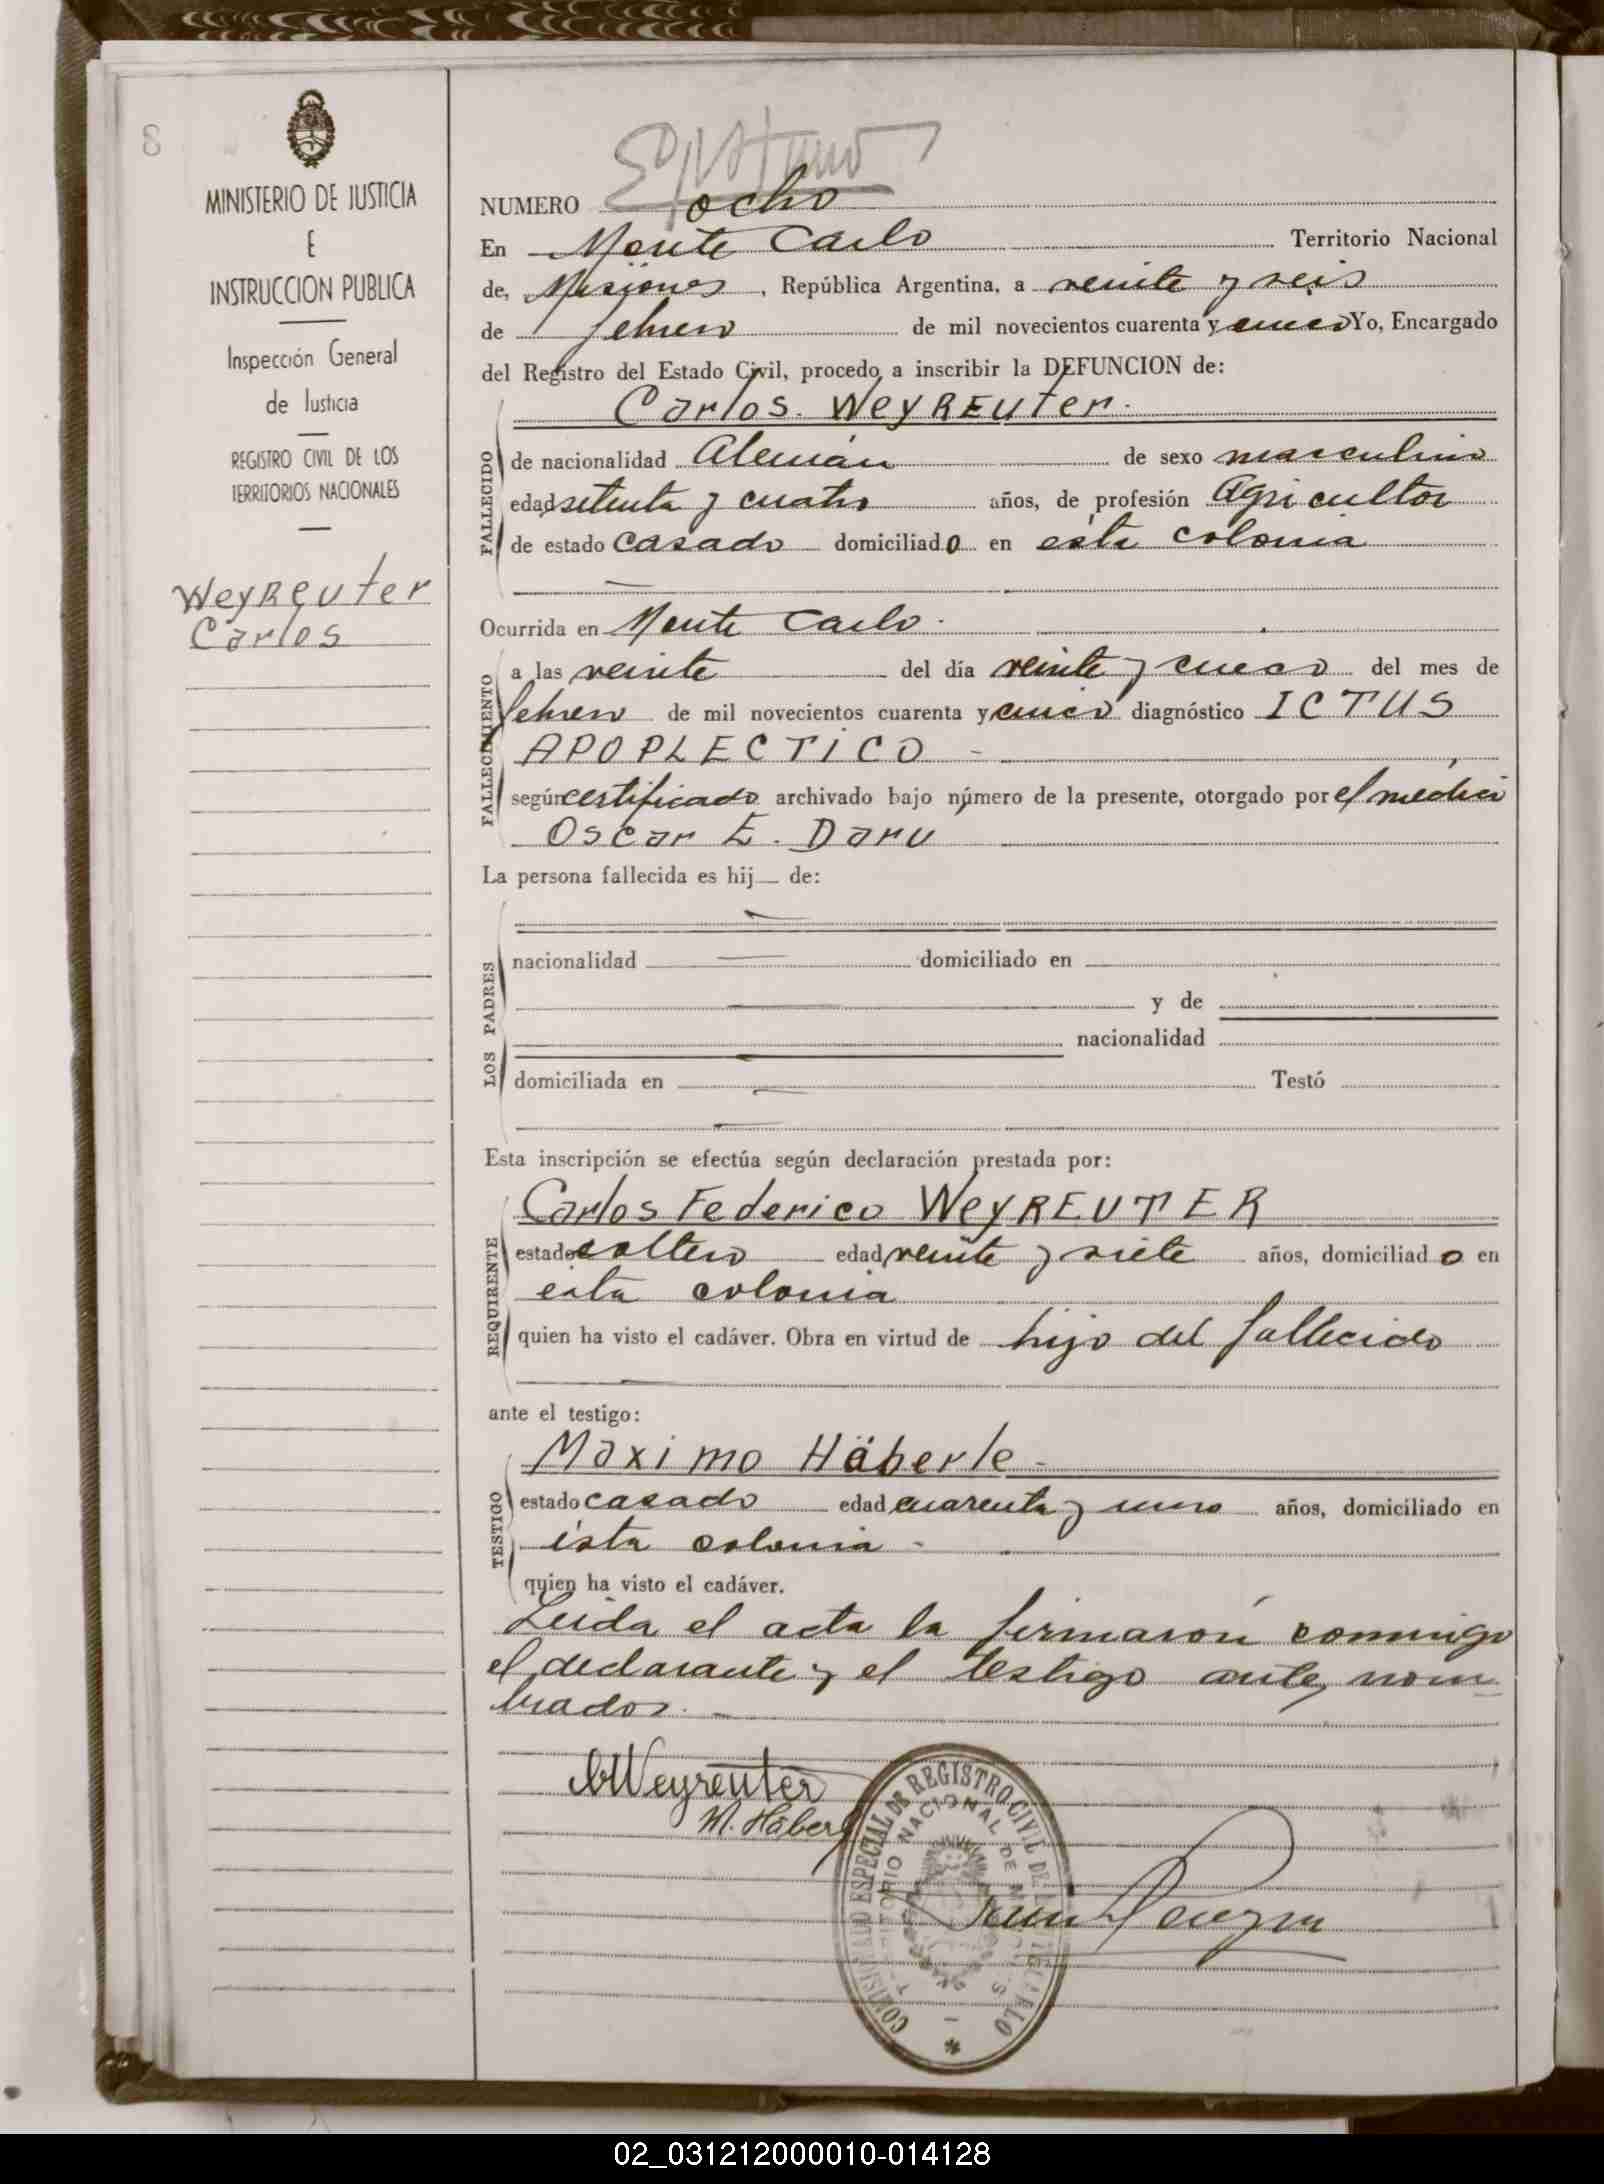 8
MINISTERIO DE JUSTICIA
E
INSTRUCCION PUBLICA
Inspección General
de Justicia
REGISTRO CIVIL DE LOS
TERRITORIOS NACIONALES
Weyreuter
Carlos
NUMERO ocho
En Monte Carlo Territorio Nacional
de, Misiones, República Argentina, a veinte y seis
de febrero de mil novecientos cuarenta y cinco Yo, Encargado
del Registro del Estado Civil, procedo a inscribir la DEFUNCION de:
Carlos. WeyREUter.
FALLECIDO
de nacionalidad Alemán de sexo masculino
edad setenta y cuatro años, de profesión Agricultor
de estado casado domiciliado en ésta colonia
Ocurrida en Monte Carlo.
FALLECIMIENTO
a las veinte del día veinte y cinco del mes de
febrero de mil novecientos cuarenta y cinco diagnóstico ICTUS
APOPLECTICO -
según certificado archivado bajo número de la presente, otorgado por el médico
Oscar E. Daru
La persona fallecida es hij de:
LOS PADRES
nacionalidad domiciliado en
y de
nacionalidad
domiciliada en Testó
Esta inscripción se efectúa según declaración prestada por:
Carlos Federico WeyREUTER
REQUIRENTE
estado soltero edad veinte y siete años, domiciliado en
ésta colonia
quien ha visto el cadáver. Obra en virtud de hijo del fallecido
ante el testigo:
Maximo Häberle -
TESTIGO
estado casado edad cuarenta y uno años, domiciliado en
ésta colonia -
quien ha visto el cadáver.
Leida el acta la firmarón conmigo
el declarante y el testigo ante nom
brados. -
Weyreuter
M. Häberle
COMISARIADO ESPECIAL DE REGISTRO CIVIL DE MONTE CARLO
TERRITORIO NACIONAL DE MISIONES
02_031212000010-014128